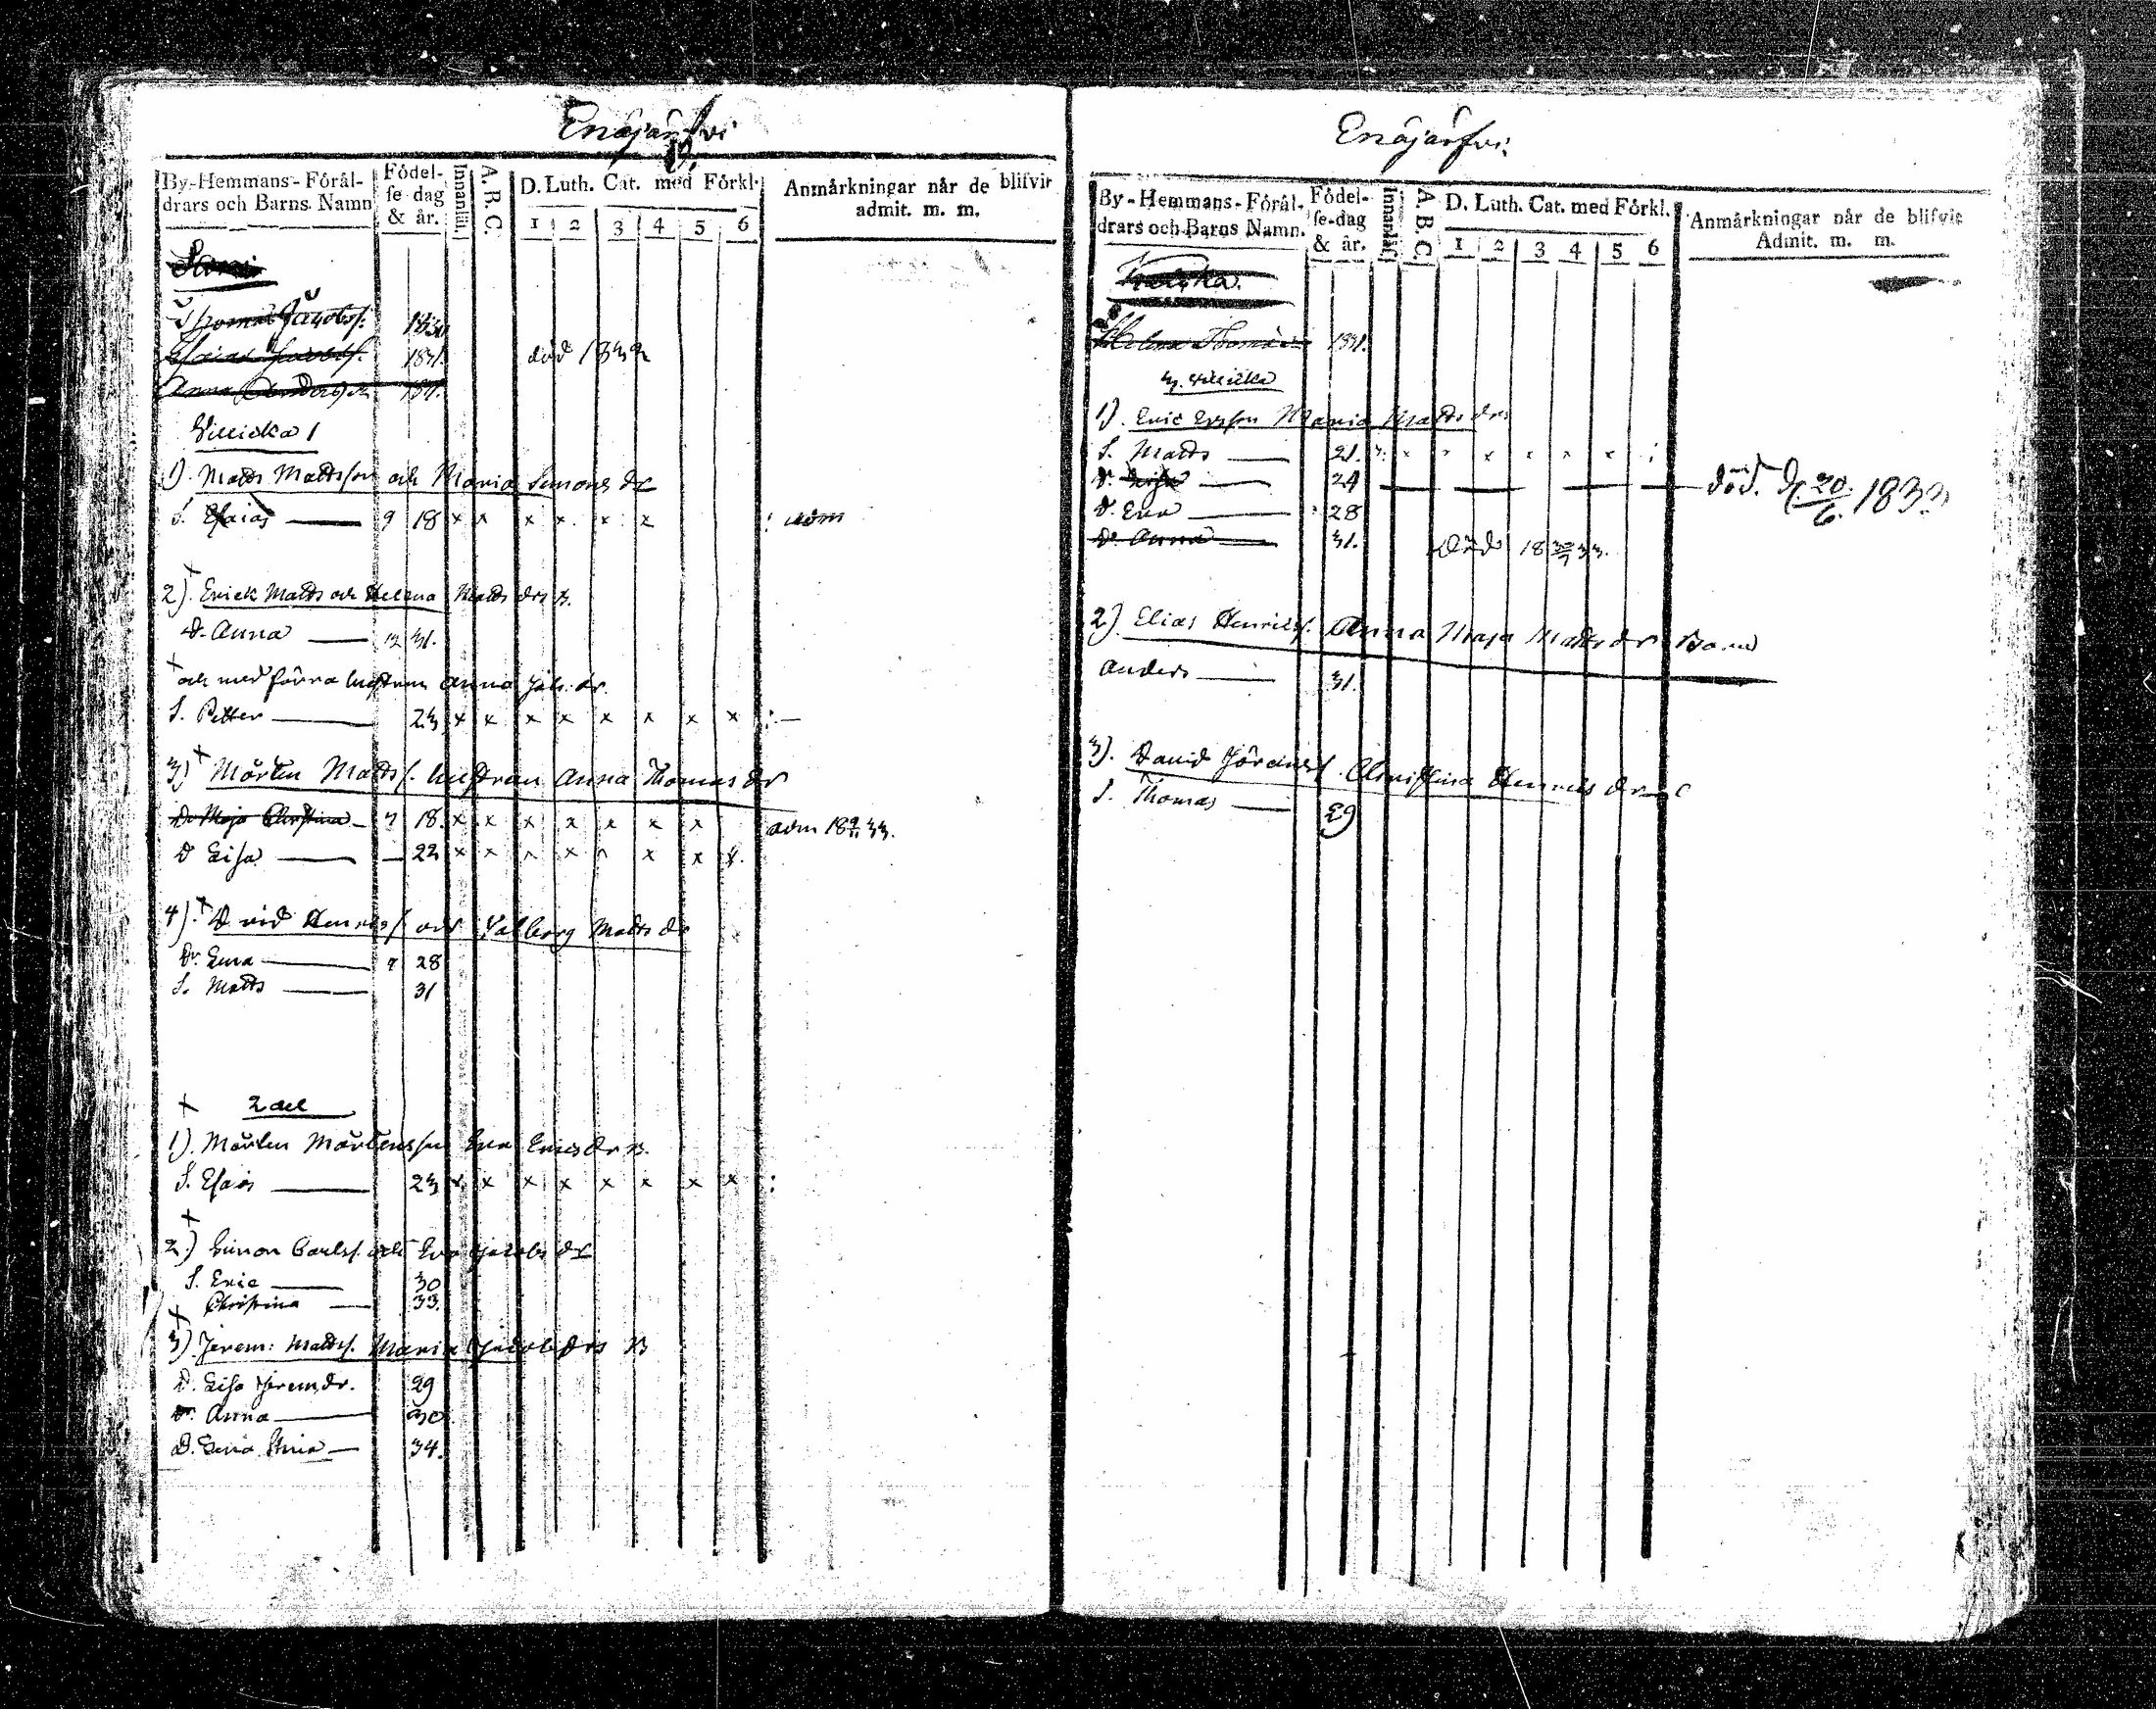 Enäjärfvi
By-Hemmans-Förål-
drars och Barns Namn
Födel-
se dag
& år.
Innanläs.
A. B. C.
D. Luth. Cat. med Förkl.
1 2 3 4 5 6
Anmärkningar når de blifvit
admit. m. m.
Jacobs.
1831. död 1832
Anna
Villicka 1
1). Matts Mattsson och Maria Simons dr
S. Esaias 9 18 x x x x x x adm
2). Erick Matts och Helena Matts drs B.
D. Anna 12 31.
och med förra hustrun Anna Jac. dr.
S. Petter 23 x x x x x x x x
3) Mårten Matts s. hustrun Anna Thomas dr
Dr Maja Christina 7 18. x x x x x x x adm 33.
D Lisa 22 x x x x x x x x
4). David Henrics s och Valborg Matts dr
Dr. Lena 7 28
S. Matts 31
2 del
1). Mårten Mårtensson Eva Erics dr B.
S. Esaias 23 x x x x x x x x
2.) Simon Carls s. och Eva Jacobs dr
S. Eric 30
Christina 33.
3) Jerem: Matts s. Maria Jacobs drs B
D. Lisa Jerem. dr. 29
Dr. Anna 30
D. Stina 34.
Enäjärfvi.
By-Hemmans-Förål-
drars och Barns Namn.
Födel-
se-dag
& år.
Innanläs.
A. B. C.
D. Luth. Cat. med Förkl.
1 2 3 4 5 6
Anmärkningar når de blifvit
Admit. m. m.
Helena Thomas dr 1831.
3. Villicka
1). Eric Ersson Maria Matts drs
S. Matts 21. x x x x x x x
D. Lisa 24 död. d. 20/6. 1833
D. Eva 28
Dr Anna 31. död 33.
2). Elias Henrics s. Anna Maja Matts dr Barn
Anders 31.
3). David Jörans s. Christina Henrics dr
S. Thomas 29